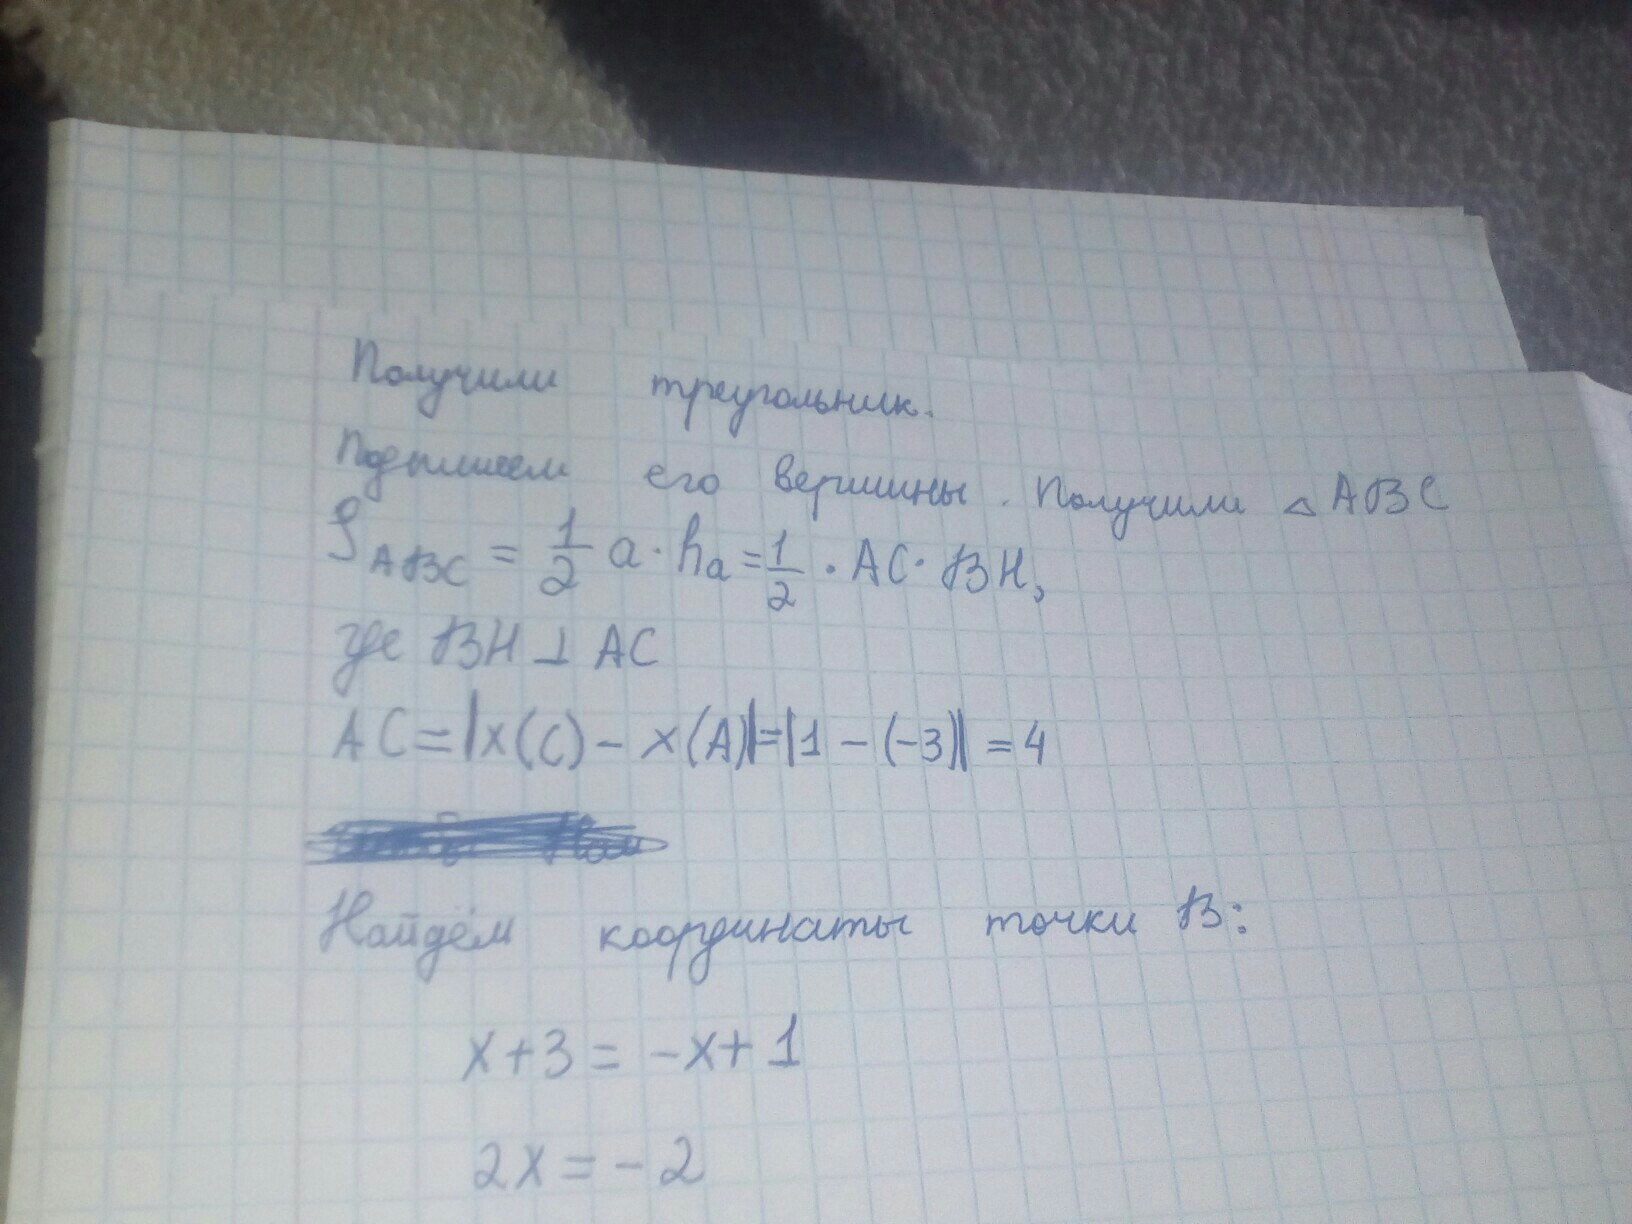 Получили треугольник.
Подпишем его вершины. Получили △ABC
S_ABC = 1/2 a · h_a = 1/2 · AC · BH,
где BH ⊥ AC
AC = |x(C) - x(A)| = |1 - (-3)| = 4
Найдём координаты точки B:
x + 3 = -x + 1
2x = -2